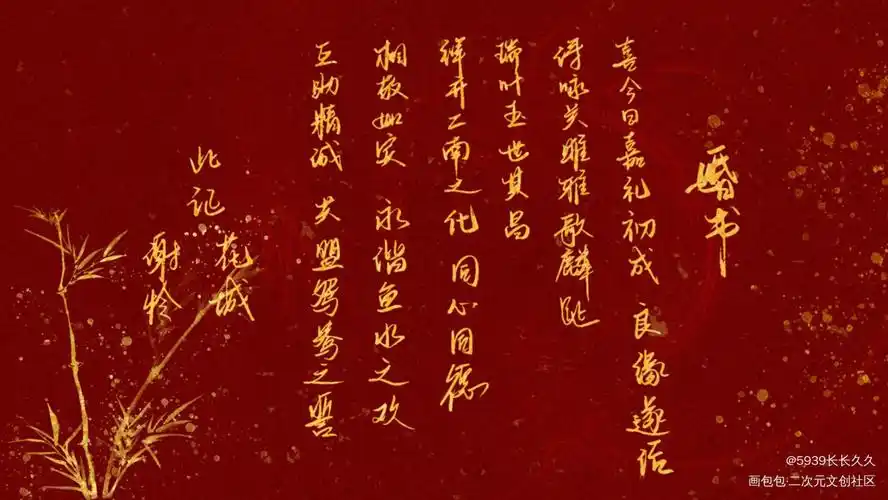 婚书
喜今日嘉礼初成 良缘遂缔
诗咏关雎雅歌麟趾
瑞叶五世其昌
祥开二南之化 同心同德
相敬如宾 永偕鱼水之欢
互助精诚 共盟鸳鸯之誓
此证 花城
谢怜
@5939长长久久
画包包·二次元文创社区